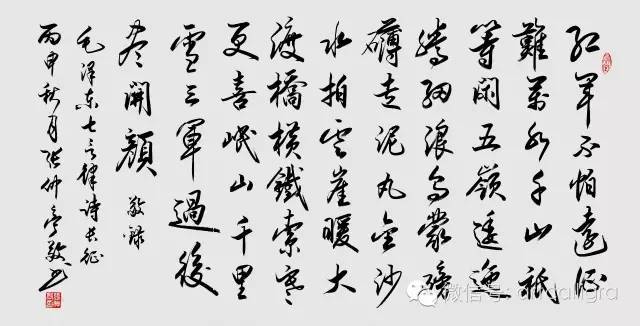 红军不怕遠征
難萬水千山祇
等闲五嶺逶迤
腾细浪乌蒙磅
礴走泥丸金沙
水拍雲崖暖大
渡橋横鐵索寒
更喜岷山千里
雪三軍過後
尽開顔 敬録
毛泽东七言律诗长征
丙申秋月张仲亭敬书
微信号: